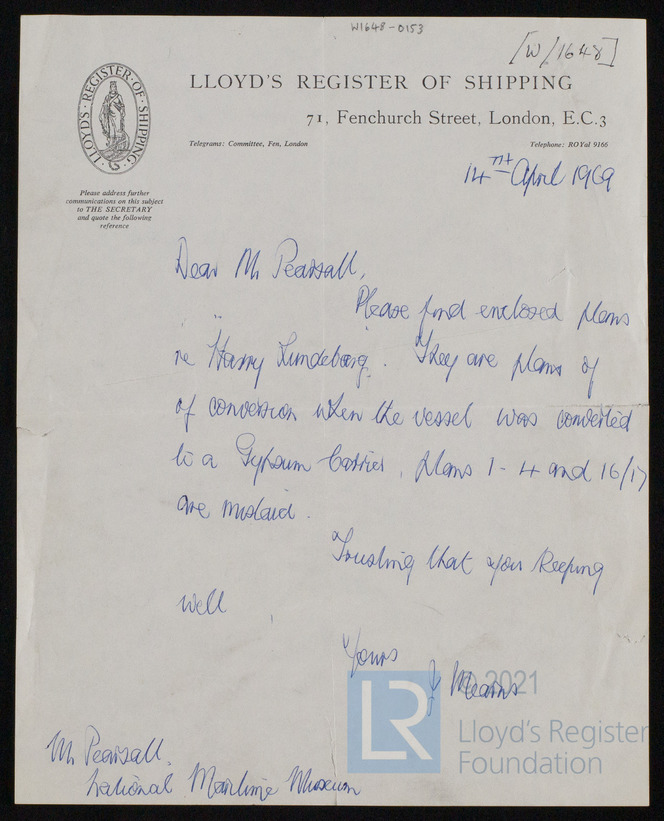 W1648-0153
[W/1648]
LLOYD'S REGISTER OF SHIPPING
LLOYD'S REGISTER OF SHIPPING
71, Fenchurch Street, London, E.C.3
Telegrams: Committee, Fen, London
Telephone: ROYal 9166
Please address further
communications on this subject
to THE SECRETARY
and quote the following
reference
14TH April 1969
Dear Mr Pearsall,
Please find enclosed plans
re "Harry Lundeberg". They are plans of
of conversion when the vessel was converted
to a Gypsum Carrier, plans 1-4 and 16/17
are mislaid.
Trusting that your keeping
well
Yours
J Mearns
Mr Pearsall,
National Maritime Museum
LR
2021
Lloyd's Register
Foundation